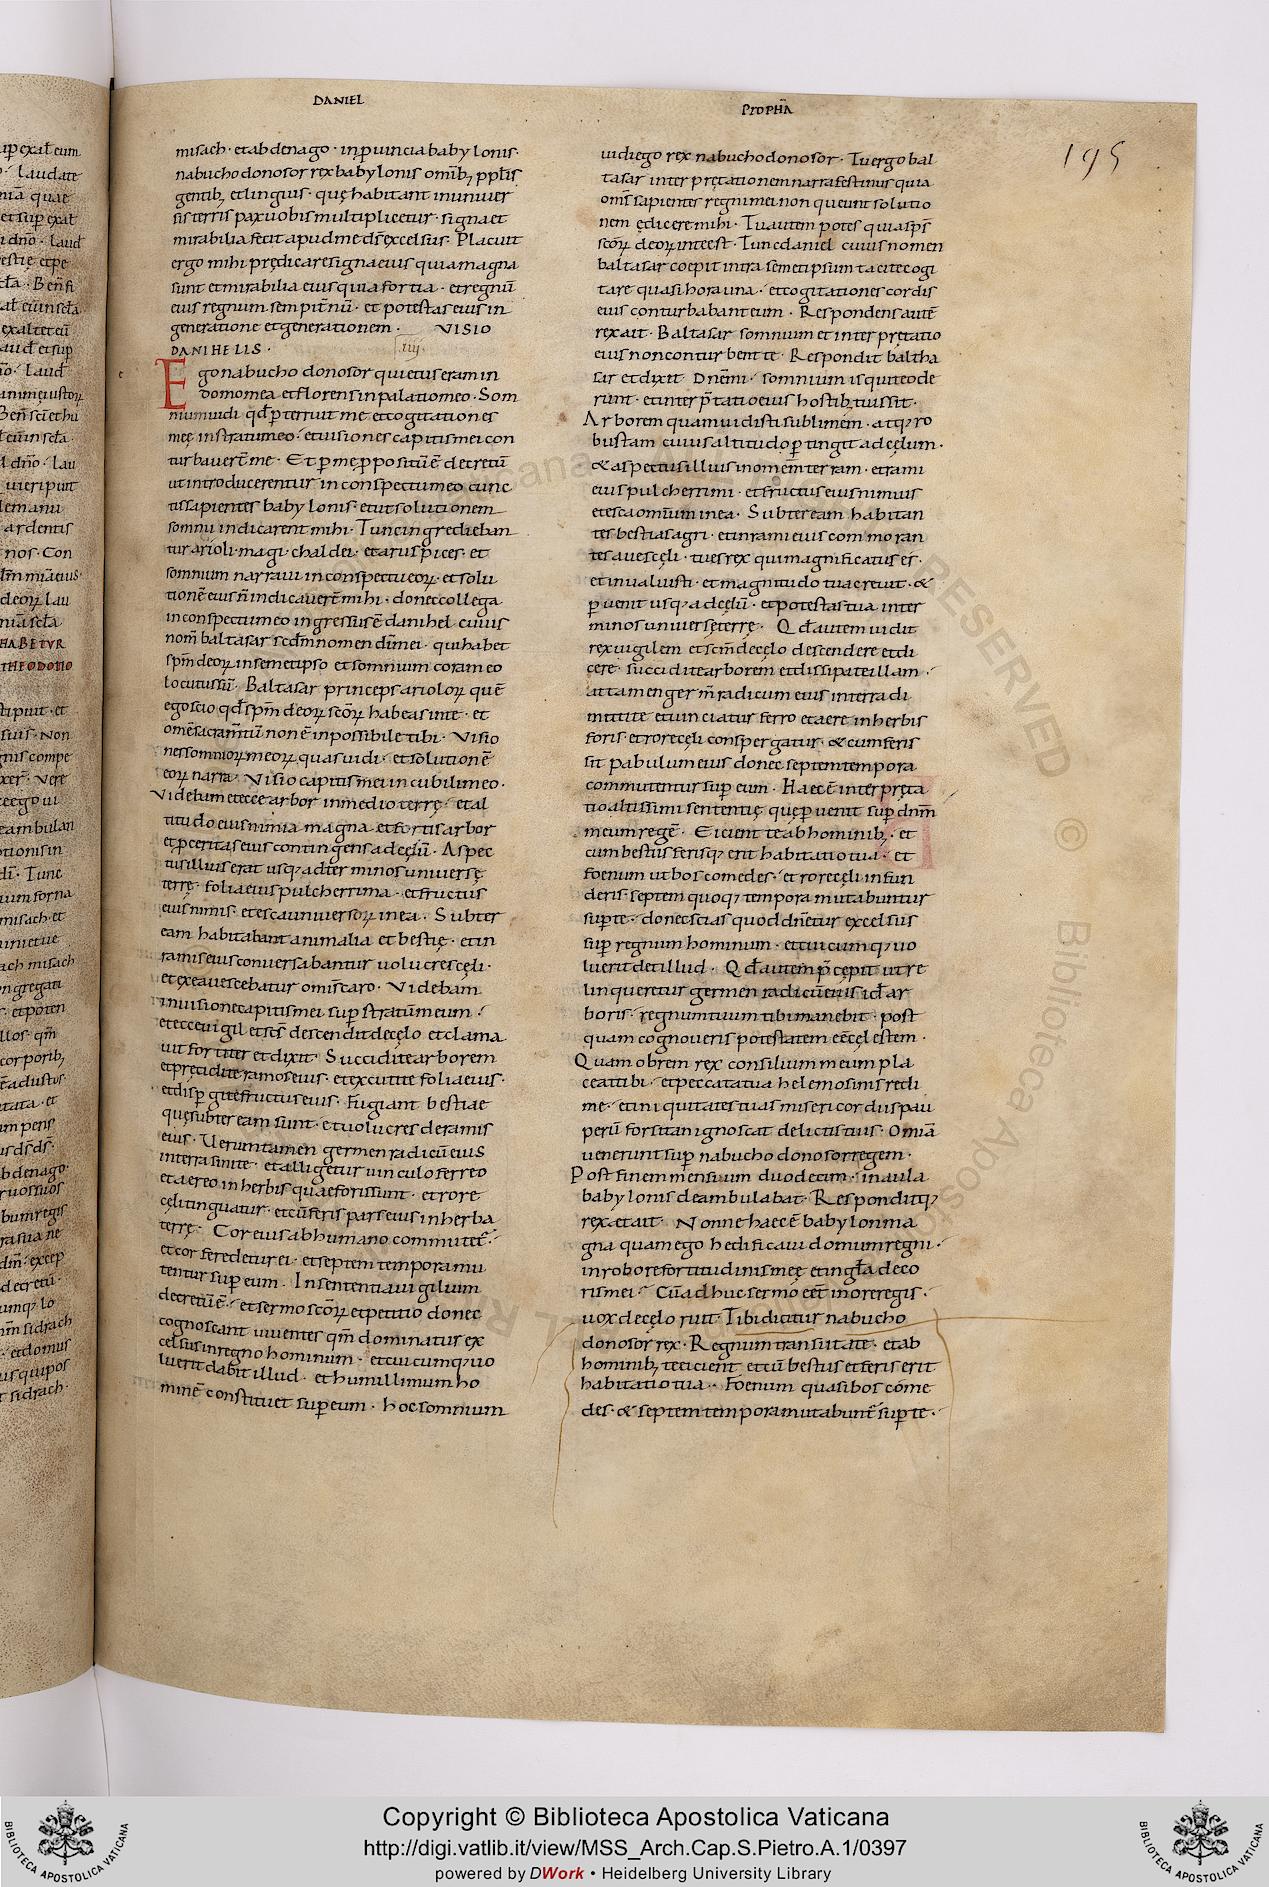 DANIEL
misach · et abdenago · in ꝓuincia babylonis ·
nabuchodonosor rex babylonis omīb; ppl̄is
gentib; et linguis · quę habitant in uniuer
sis terris pax uobis multiplicetur · signa et
mirabilia fecit apud me d̄s excelsus · Placuit
ergo mihi prędicare signa eius quia magna
sunt et mirabilia eius quia fortia · et regnū
eius regnum sempit̄nū · et potestas eius in
generatione et generationem · VISIO
DANIHELIS · iiij
Ego nabuchodonosor quietus eram in
domo mea et florens in palatio meo · Som
nium uidi qd̄ ꝑterruit me et cogitationes
meę in strato meo · et uisiones capitis mei con
turbauer̄t me · Et ꝑ me ꝓpositū ē decretū
ut introducerentur in conspectu meo cunc
ti sapientes babylonis · et ut solutionem
somnii indicarent mihi · Tunc ingredieban
tur arioli · magi · chaldei · et aruspices · et
somnium narraui in conspectu eoꝝ · et solu
tionē eius n̄ indicauer̄t mihi · donec collega
in conspectu meo ingressus ē danihel cuius
nom̄ baltasar scdm̄ nomen dī mei · qui habet
spm̄ deoꝝ in semetipso et somnium coram eo
locutus sū · Baltasar princeps arioloꝝ quē
ego scio qd̄ spm̄ deoꝝ scōꝝ habeas in te · et
omē sacram̄tū non ē inpossibile tibi · Visio
nes somnioꝝ meoꝝ quas uidi · et solutionē
eoꝝ narra · Visio capitis mei in cubili meo ·
Videbam et ecce arbor in medio terrę · et al
titudo eius nimia magna et fortis arbor
et ꝓceritas eius contingens ad cęlū · Aspec
tus illius erat usq; ad t̄minos uniuersę
terrę · folia eius pulcherrima · et fructus
eius nimis · et esca uniuersoꝝ in ea · Subter
eam habitabant animalia et bestię · et in
ramis eius conuersabantur uolucres cęli ·
et ex ea uescebatur omis caro · Videbam
in uisione capitis mei suꝑ stratū meum ·
et ecce uigil et sc̄s descendit de cęlo et clama
uit fortiter et dixit · Succidite arborem
et pręcidite ramos eius · et excutite folia eius ·
et disꝑgite fructus eius · Fugiant bestiae
quę subter eam sunt · et uolucres de ramis
eius · Uerumtamen germen radicū eius
in terra sinite · et alligetur uinculo ferreo
et aereo in herbis quae foris sunt · et rore
cęli tinguatur · et cū feris pars eius in herba
terrę · Cor eius ab humano commutet̄ ·
et cor ferę detur ei · et septem tempora mu
tentur suꝑ eum · In sententia uigilum
decretū ē · et sermo scōꝝ et petitio donec
cognoscant uiuentes qm̄ dominatur ex
celsus in regno hominum · et cuicumq; uo
luerit dabit illud · et humillimum ho
minē constituet suꝑ eum · hoc somnium
PROPHA
195
uidi ego rex nabuchodonosor · Tu ergo bal
tasar interprętationem narra festinus quia
om̄s sapientes regni mei non queunt solutio
nem ędicere mihi · Tu autem potes quia sp̄s
scōꝝ deoꝝ in te est · Tunc daniel cuius nomen
baltasar coepit intra semetipsum tacite cogi
tare quasi hora una · et cogitationes cordis
eius conturbabant eum · Respondens autē
rex ait · Baltasar somnium et interprętatio
eius non conturbent te · Respondit baltha
sar et dixit · Dn̄e mi · somnium is qui te ode
runt · et interp̄tatio eius hostib; tuis sit ·
Arborem quam uidisti sublimem · atq; ro
bustam cuius altitudo ꝑtingit ad cęlum ·
& aspectus illius in omēm terram · et rami
eius pulcherrimi · et fructus eius nimius
et esca omnium in ea · Subter eam habitan
tes bestias agri · et in ramis eius commoran
tes aues cęli · tu es rex qui magnificatus es ·
et inualuisti · et magnitudo tua creuit · &
ꝑuenit usq; ad cęlū · et potestas tua in ter
minos uniuersę terrę · Qd̄ autem uidit
rex uigilem et scm̄ de cęlo descendere et di
cere · succidite arborem et dissipate illam ·
attamen germ̄ radicum eius in terra di
mittite et uinciatur ferro et aere in herbis
foris et rore cęli conspergatur · & cum feris
sit pabulum eius donec septem tempora
commutentur suꝑ eum · Haec ē interpręta
tio altissimi sententię quę ꝑuenit suꝑ dn̄m
meum regē · Eicient te ab hominib; · et
cum bestiis ferisq; erit habitatio tua · et
foenum ut bos comedes · et rore cęli infun
deris · septem quoq; tempora mutabuntur
suꝑ te · donec scias quod dn̄etur excelsus
suꝑ regnum hominum · et cuicumq; uo
luerit det illud · Qd̄ autem p̄cępit ut re
linqueretur germen radicū eius id ē ar
boris · regnum tuum tibi manebit · post
quam cognoueris potestatem eē cęlestem ·
Quam obrem rex consilium meum pla
ceat tibi · et peccata tua helemosinis redi
me · et iniquitates tuas misericordiis pau
perū forsitan ignoscat delictis tuis · Omīa
uenerunt suꝑ nabuchodonosor regem ·
Post finem mensium duodecim · in aula
babylonis deambulabat · Responditq;
rex et ait · Nonne haec ē babylon ma
gna quam ego hedificaui domum regni ·
in robore fortitudinis meę et in gl̄a deco
ris mei · Cū adhuc sermo eēt in ore regis ·
uox de cęlo ruit · Tibi dicitur nabucho
donosor rex · Regnum transiit a te · et ab
hominib; te eicient et cū bestiis et feris erit
habitatio tua · Foenum quasi bos come
des · & septem tempora mutabunt̄ suꝑ te ·
Copyright © Biblioteca Apostolica Vaticana
http://digi.vatlib.it/view/MSS_Arch.Cap.S.Pietro.A.1/0397
powered by DWork • Heidelberg University Library